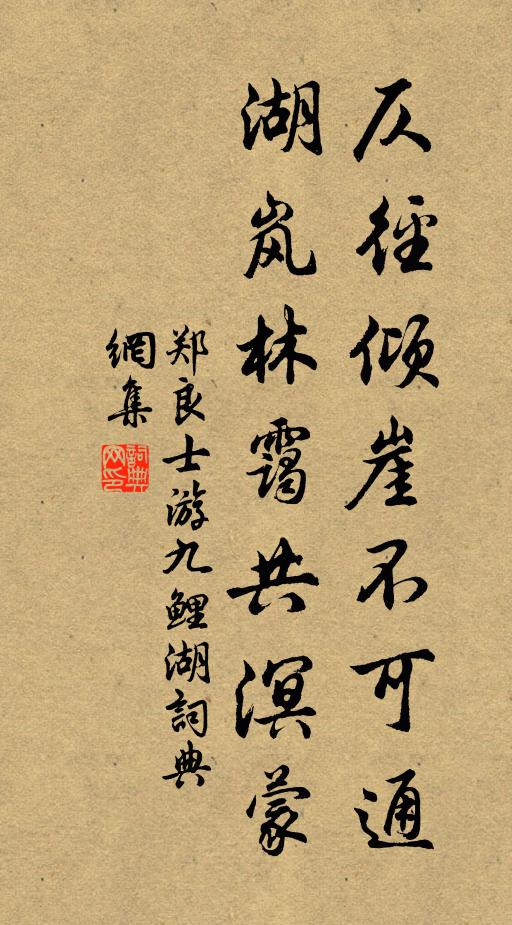 仄径倾崖不可通
湖岚林霭共溟蒙
郑良士游九鲤湖詞典
網集
詞典
网印